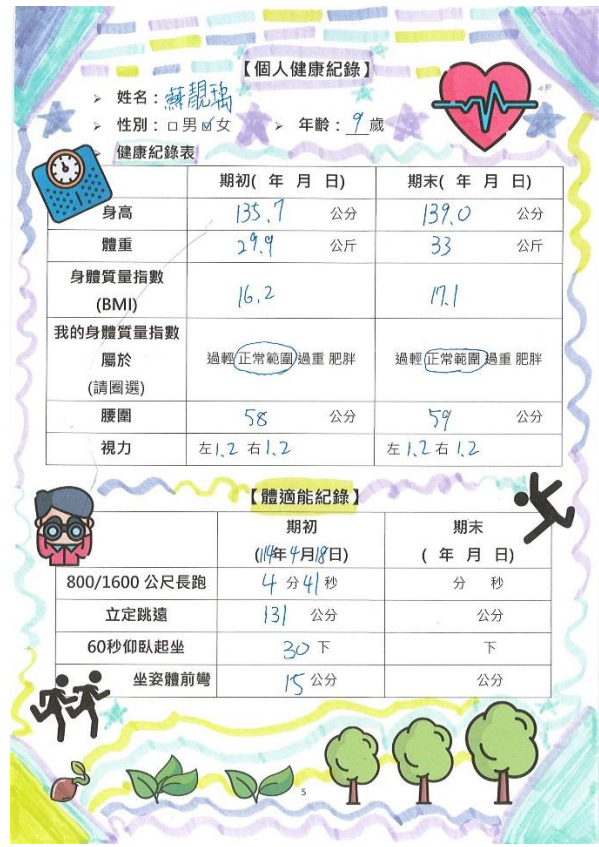 【個人健康紀錄】
➢ 姓名：蘇靚瑀
➢ 性別：□男☑女 ➢ 年齡：9歲
➢ 健康紀錄表
期初( 年 月 日) 期末( 年 月 日)
身高 135.7 公分 139.0 公分
體重 29.9 公斤 33 公斤
身體質量指數 (BMI) 16.2 17.1
我的身體質量指數
屬於 過輕 正常範圍 過重 肥胖 過輕 正常範圍 過重 肥胖
(請圈選)
腰圍 58 公分 59 公分
視力 左1.2 右1.2 左1.2 右1.2
【體適能紀錄】
期初 期末
(114年4月18日) ( 年 月 日)
800/1600 公尺長跑 4分41秒 分 秒
立定跳遠 131 公分 公分
60秒仰臥起坐 30下 下
坐姿體前彎 15公分 公分
5